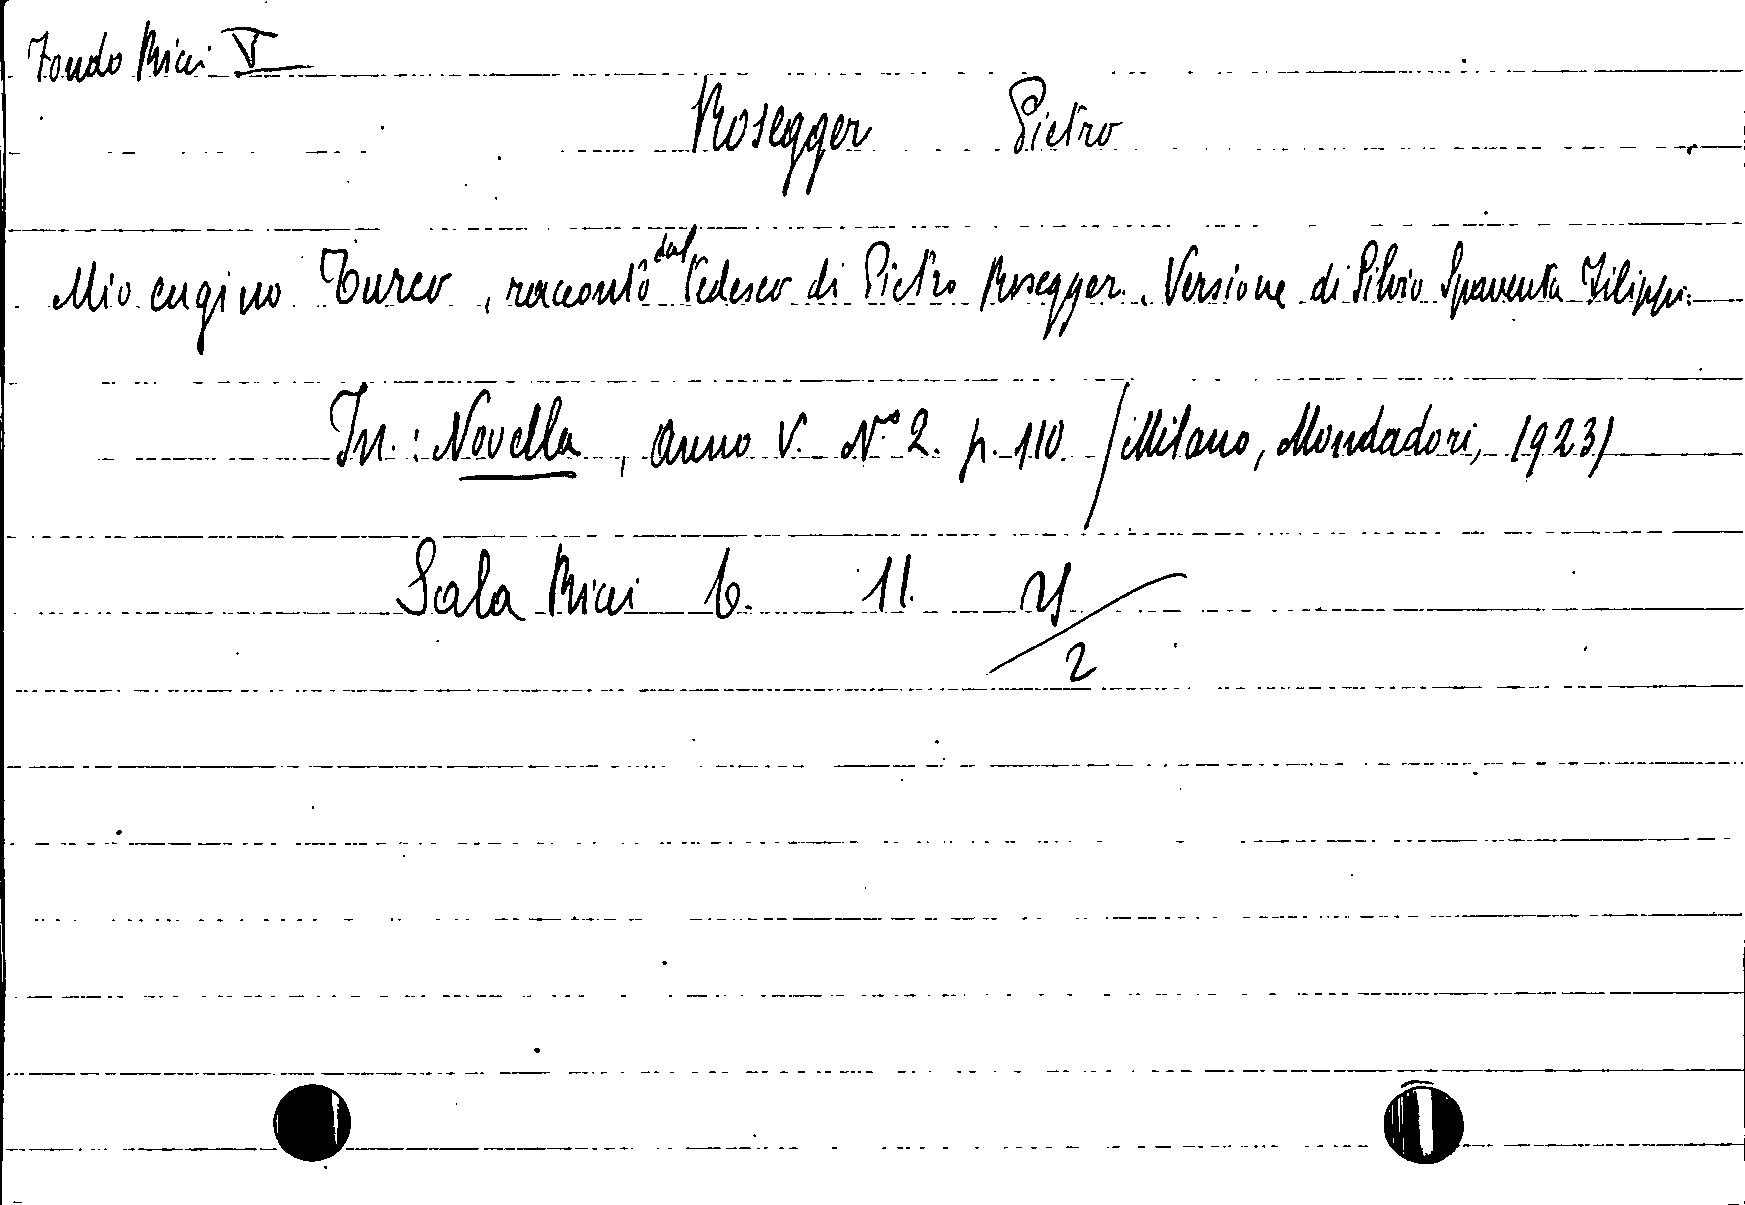 Fondo Ricci V
Rosegger Pietro
Mio cugino Turco, racconto dal Tedesco di Pietro Rosegger. Versione di Silvio Spaventa Filippi.
In.: Novella, anno V. N.° 2. p. 110. / Milano, Mondadori, 1923/
Sala Ricci 6. 11. 21/2